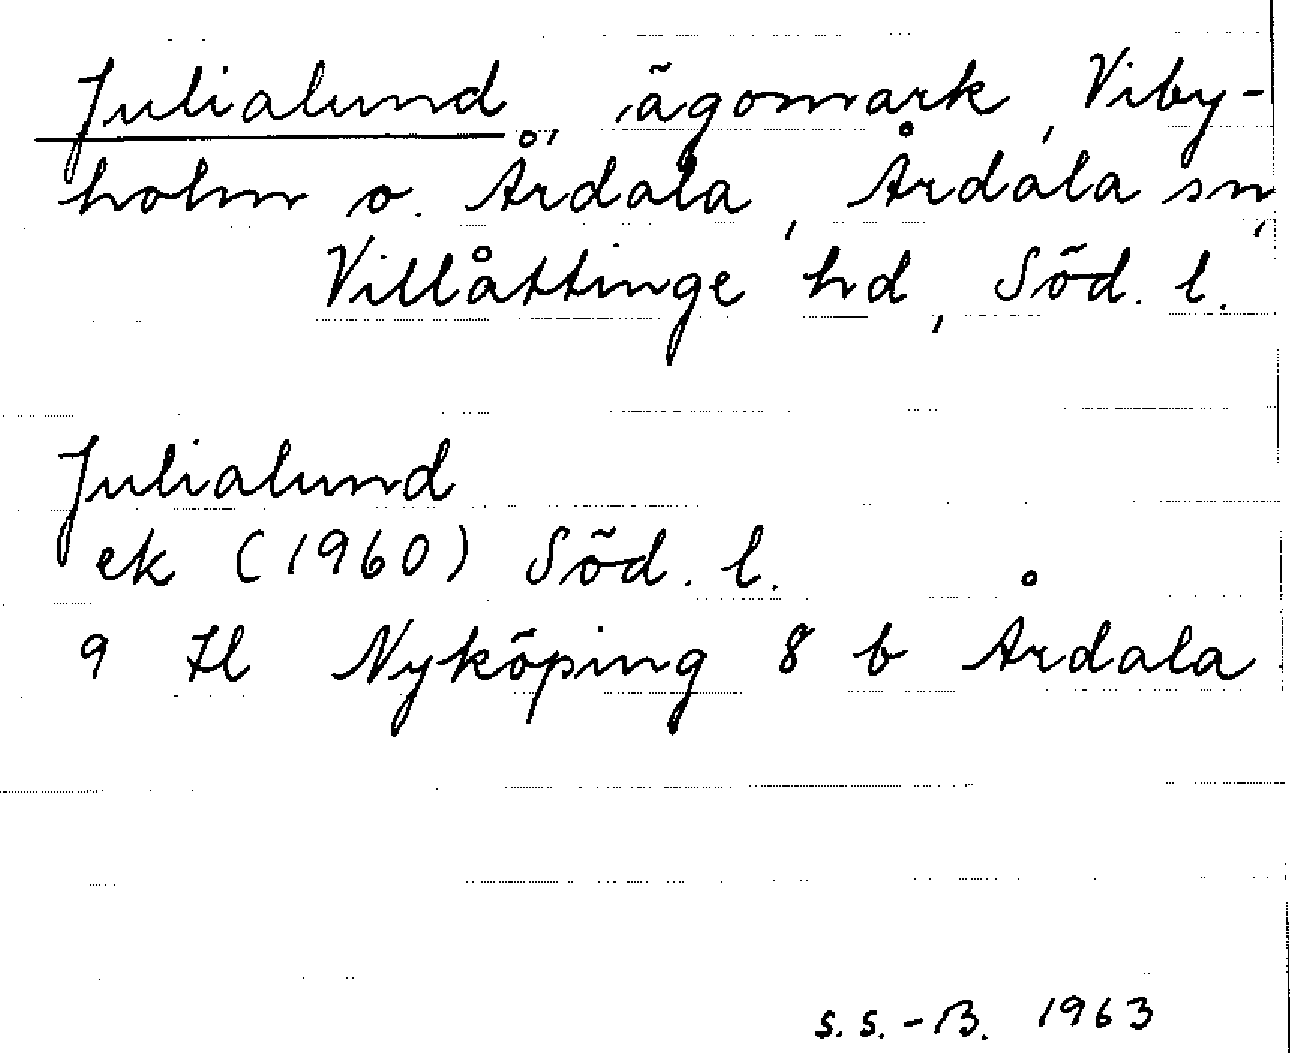 Julialund, ägomark, Viby-
holm o. Årdala, Årdala sn,
Villåttinge hd, Söd. l.
Julialund
ek (1960) Söd. l.
9 H l Nyköping 8 b Årdala
S. S. - B. 1963